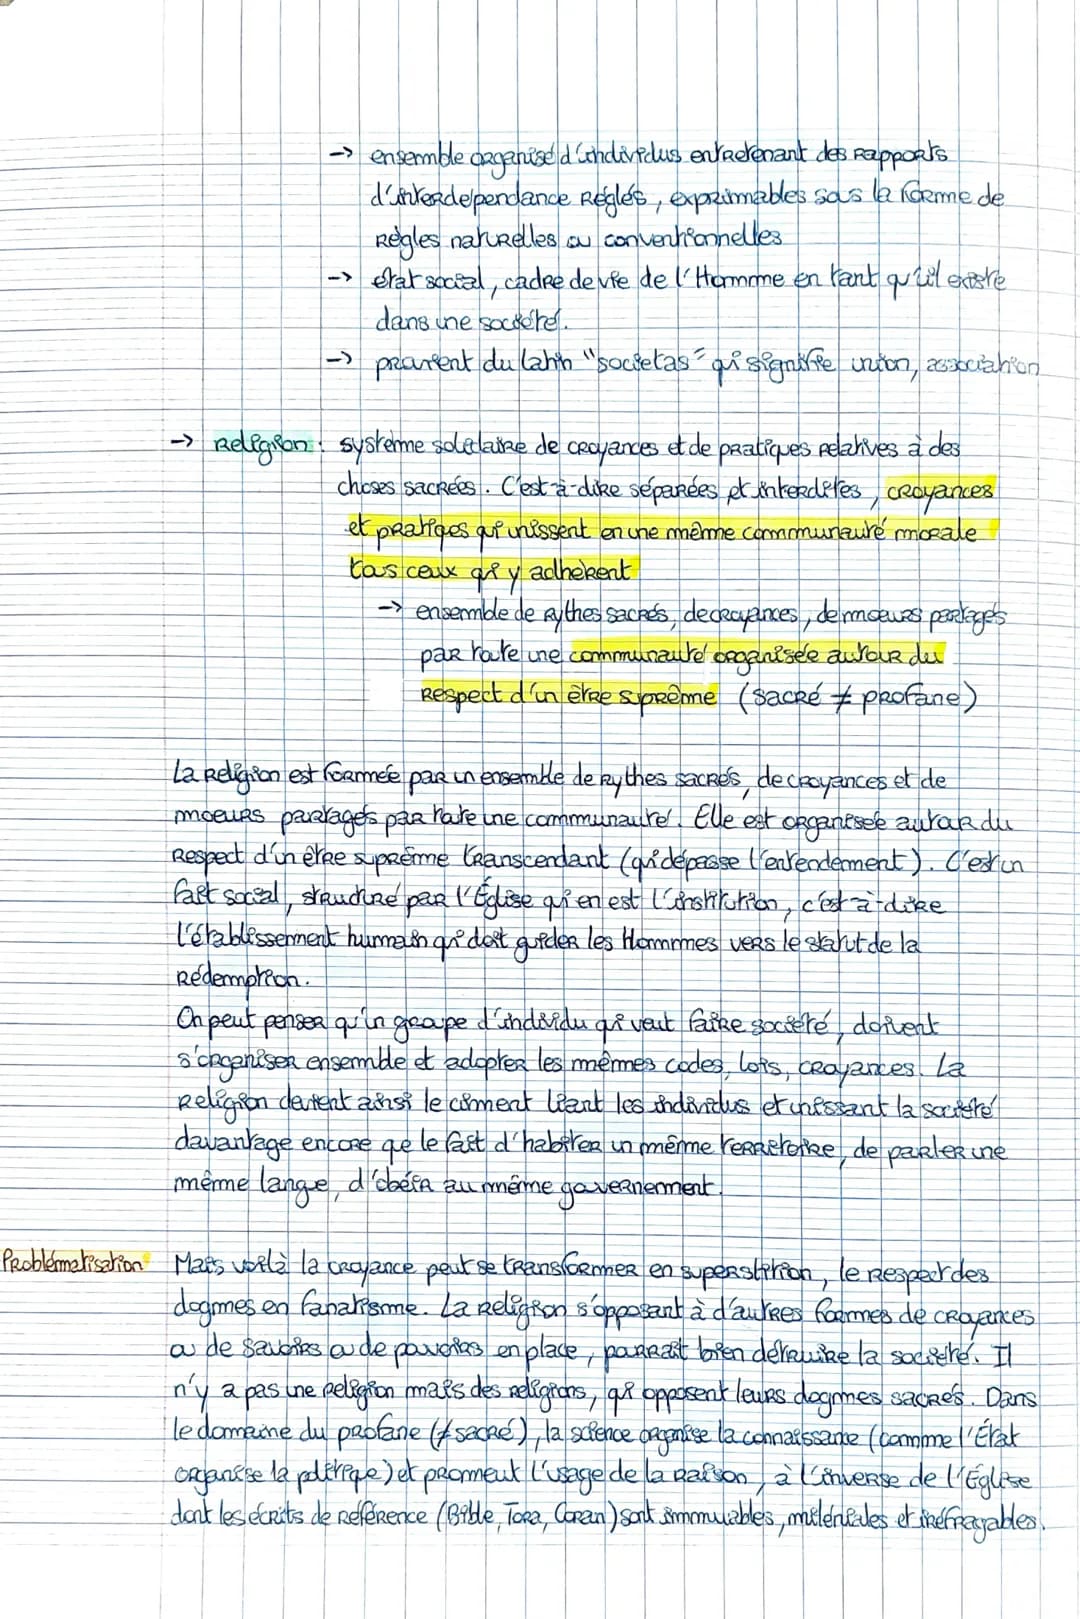 → ensemble organisé d'individus entretenant des rapports
d'interdependance réglés, exprimables sous la forme de
règles naturelles ou conventionnelles
→ état social, cadre de vie de l'Homme en tant qu'il existe
dans une société.
→ provient du latin "societas" qui signifie union, association
→ Religion : système solidaire de croyances et de pratiques relatives à des
choses sacrées. C'est-à-dire séparées et interdites, croyances
et pratiques qui unissent en une même communauté morale
tous ceux qui y adhèrent
→ ensemble de rythes sacrés, de croyances, de moeurs partagés
par toute une communauté organisée autour du
respect d'un être suprême (sacré ≠ profane)
La religion est formée par un ensemble de rythes sacrés, de croyances et de
moeurs partagés par toute une communauté. Elle est organisée autour du
respect d'un être suprême transcendant (qui dépasse l'entendement). C'est un
fait social, structuré par l'Église qui en est l'institution, c'est-à-dire
l'établissement humain qui doit guider les Hommes vers le statut de la
rédemption.
On peut penser qu'un groupe d'individu qui veut faire société, doivent
s'organiser ensemble et adopter les mêmes codes, lois, croyances. La
religion devient ainsi le ciment liant les individus et unissant la société
davantage encore que le fait d'habiter un même territoire, de parler une
même langue, d'obéir au même gouvernement.
Problématisation Mais voilà la croyance peut se transformer en superstition, le respect des
dogmes en fanatisme. La religion s'opposant à d'autres formes de croyances
ou de savoirs ou de pouvoirs en place, parrait bien détruire la société. Il
n'y a pas une religion mais des religions, qui opposent leurs dogmes sacrés. Dans
le domaine du profane (≠ sacré), la science organise la connaissance (comme l'État
organise la politique) et promeut l'usage de la raison, à l'inverse de l'Église
dont les écrits de référence (Bible, Tora, Coran) sont immuables, milléniales et iréfragables.